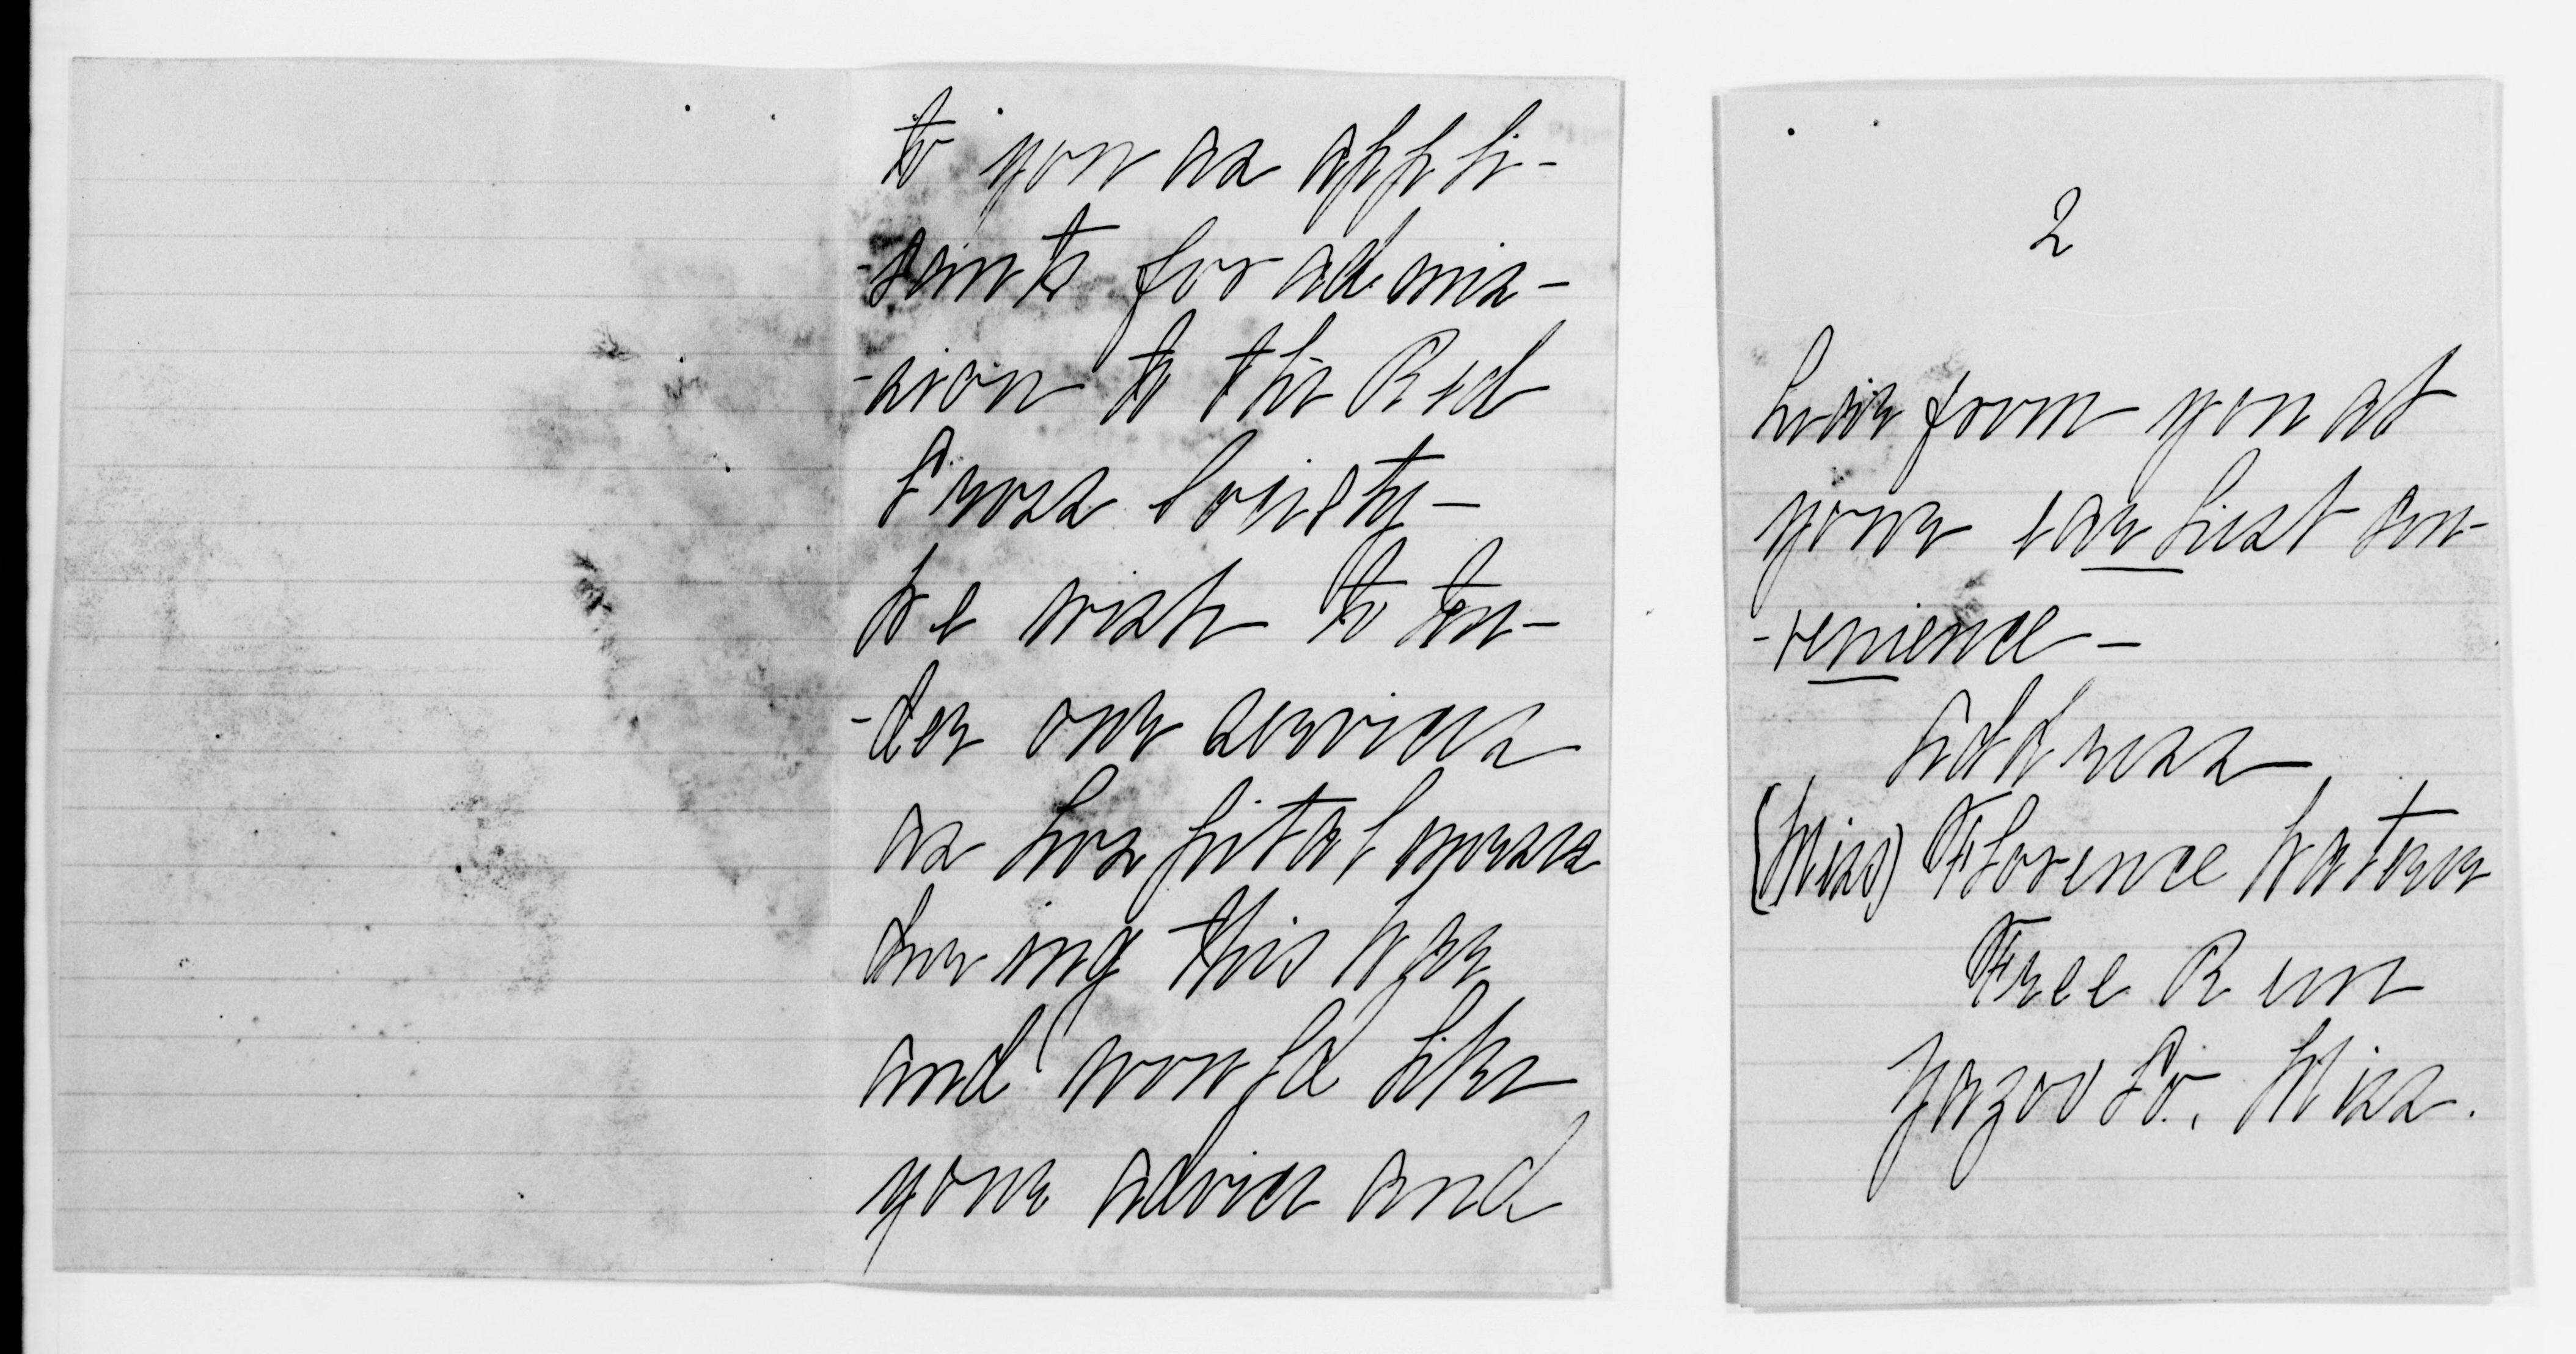 to you as appli-
-cants for admis-
-sion to the Red
Cross Society-
We wish to ten-
-der our services
as hospital nurses
during this War
and would like
your advice and
2
hear from you at
your earliest con-
-venience-
Address
(Miss) Florence Waterer
Free Run
Yazoo Co. Miss.